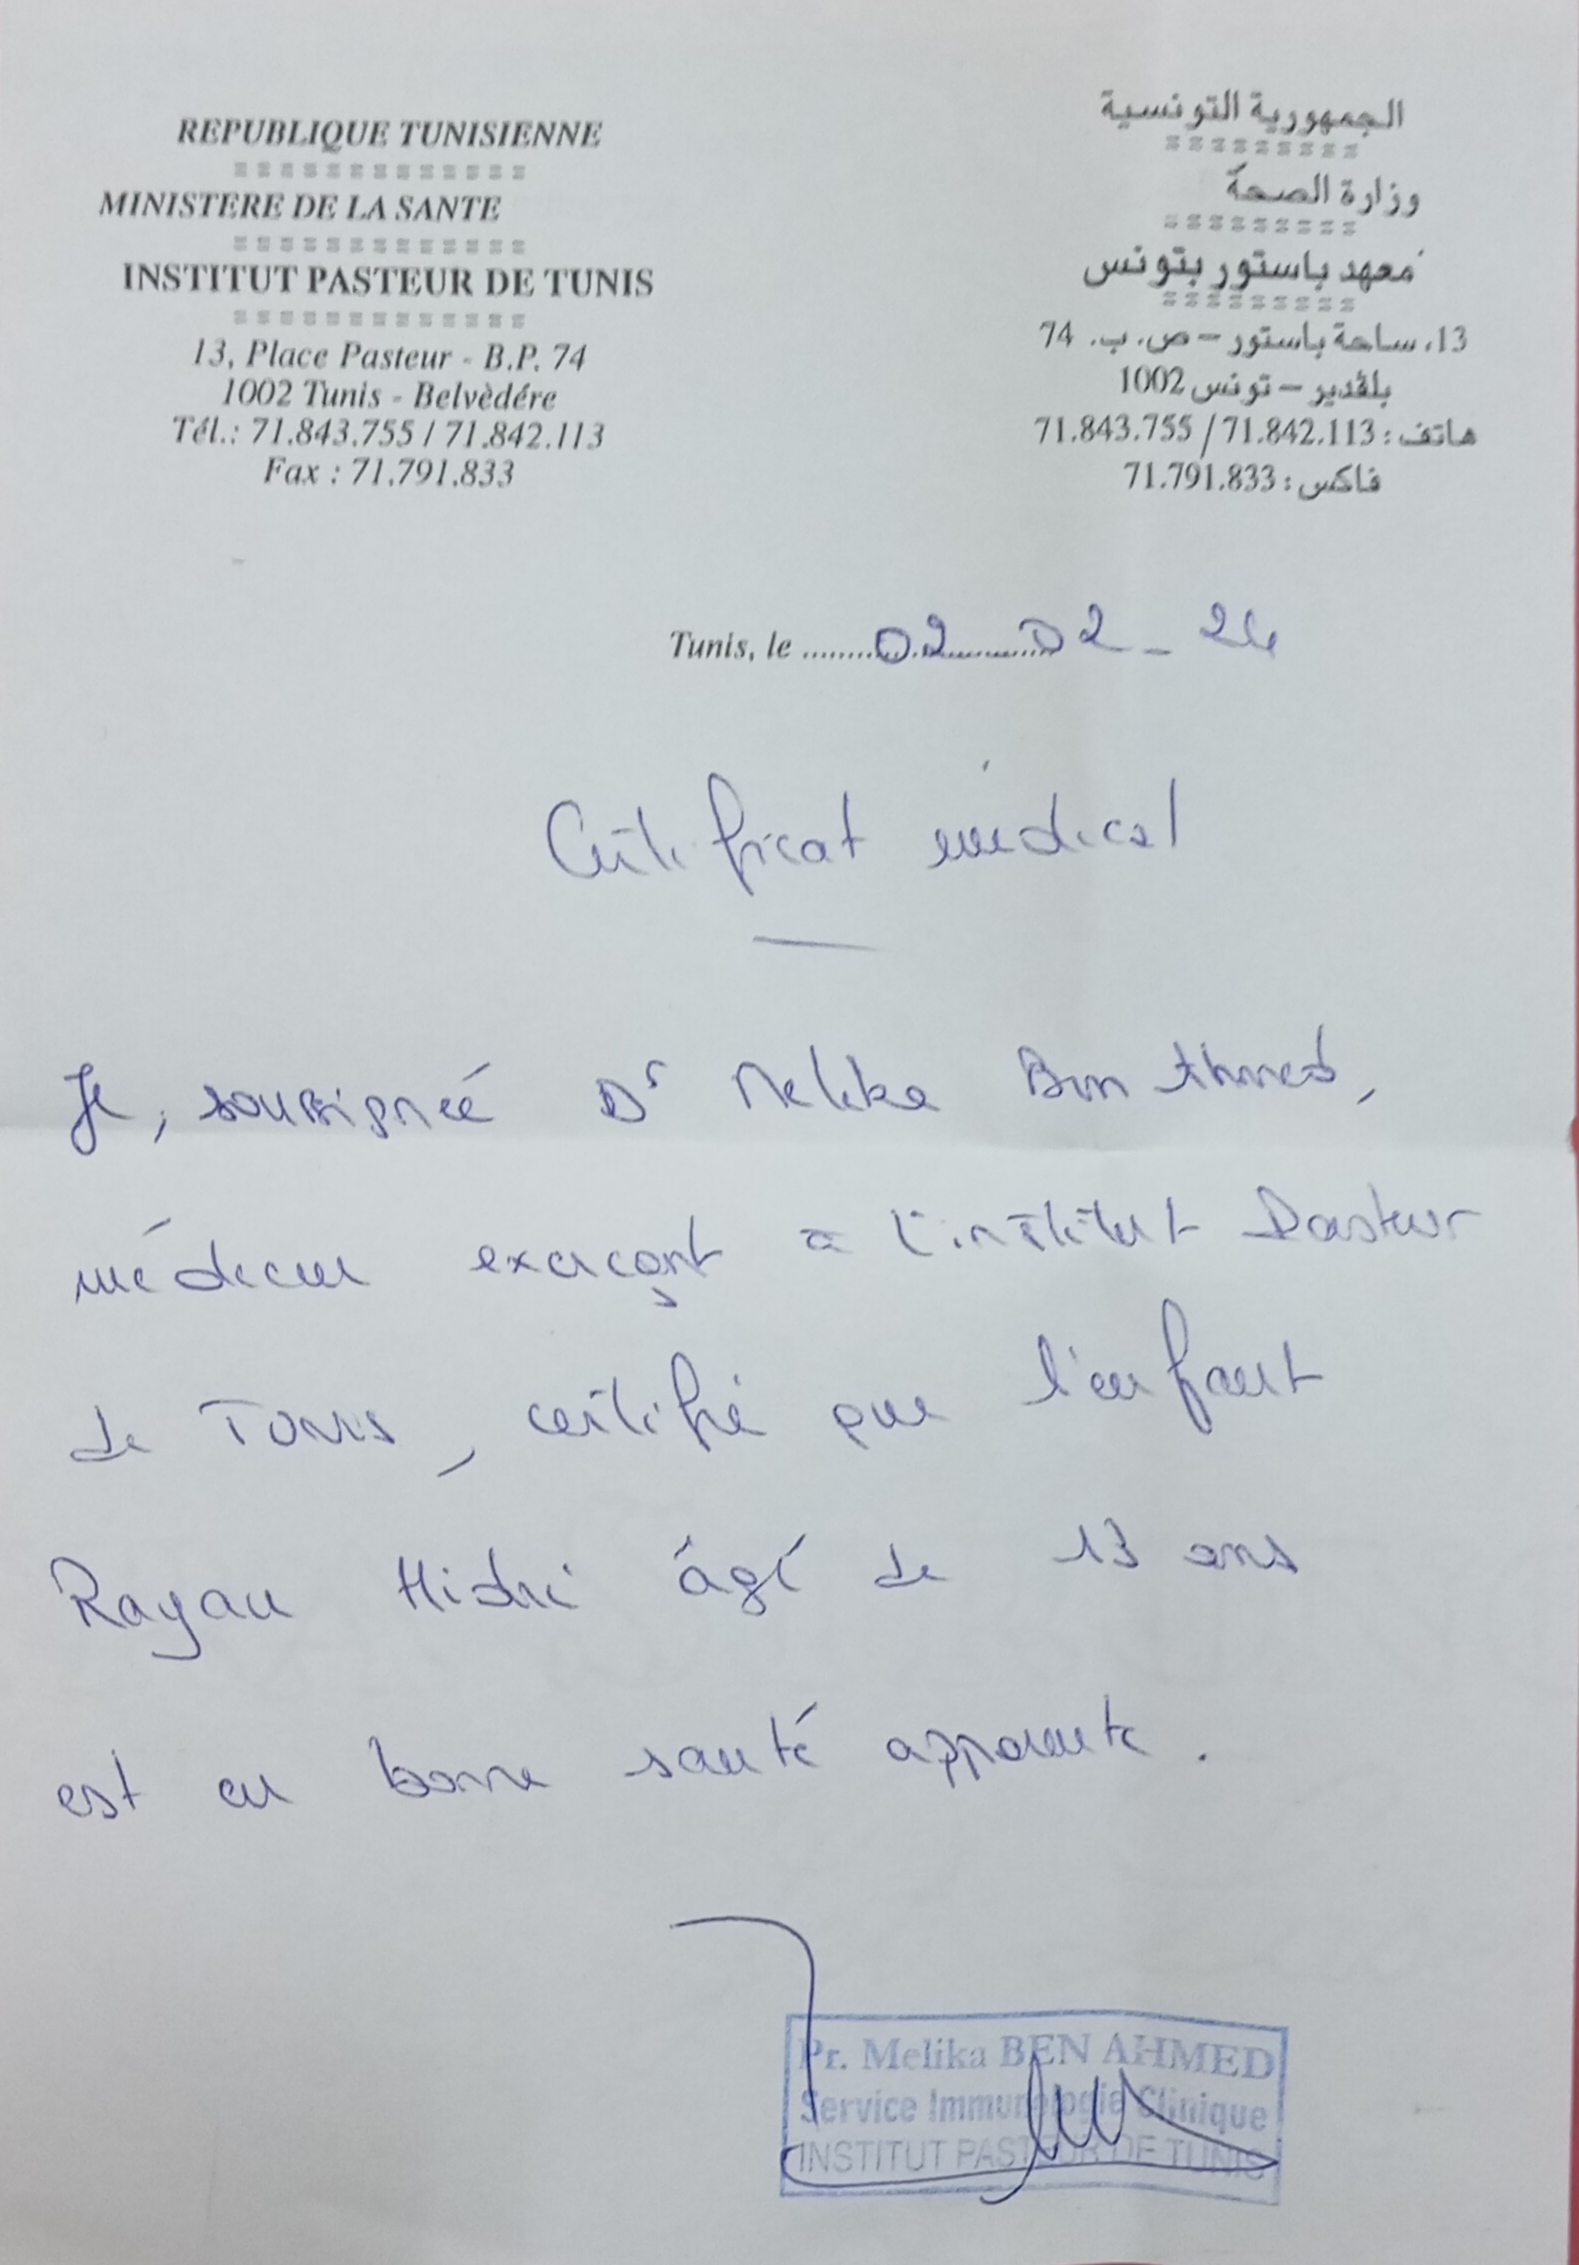 REPUBLIQUE TUNISIENNE
MINISTERE DE LA SANTE
INSTITUT PASTEUR DE TUNIS
13, Place Pasteur - B.P. 74
1002 Tunis - Belvèdére
Tél.: 71.843.755 / 71.842.113
Fax : 71.791.833
الجمهورية التونسية
وزارة الصحة
معهد باستور بتونس
13، ساحة باستور - ص. ب. 74
بلفدير - تونس 1002
هاتف : 71.842.113 / 71.843.755
فاكس : 71.791.833
Tunis, le 02 02 - 24
Certificat médical
Je, soussignée Dr Melika Ben Ahmed,
médecin exerçant à l'institut Pasteur
de Tunis, certifie que l'enfant
Rayan Hidri âgé de 13 ans
est en bonne santé apparente.
Pr. Melika BEN AHMED
Service Immunologie Clinique
INSTITUT PASTEUR DE TUNIS